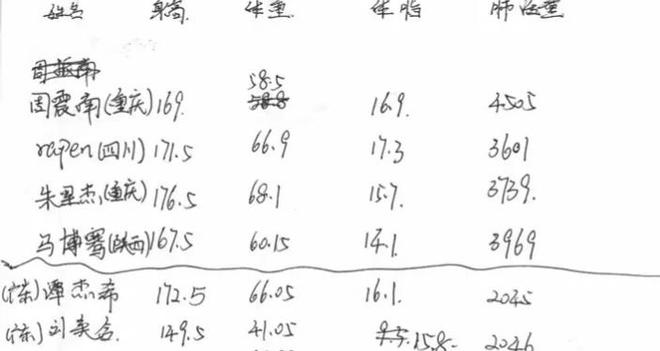 姓名 身高 体重 体脂 肺活量
58.5
周震南(重庆) 169. 16.9. 4505
rapen(四川) 171.5 66.9 17.3 3601
朱星杰(重庆) 176.5 68.1 15.7. 3739.
马博骞(陕西) 167.5 60.15 14.1. 3969
(广东)谭杰希 172.5 66.05 16.1. 2045
(广东)刘 149.5 41.05 15.8. 2046